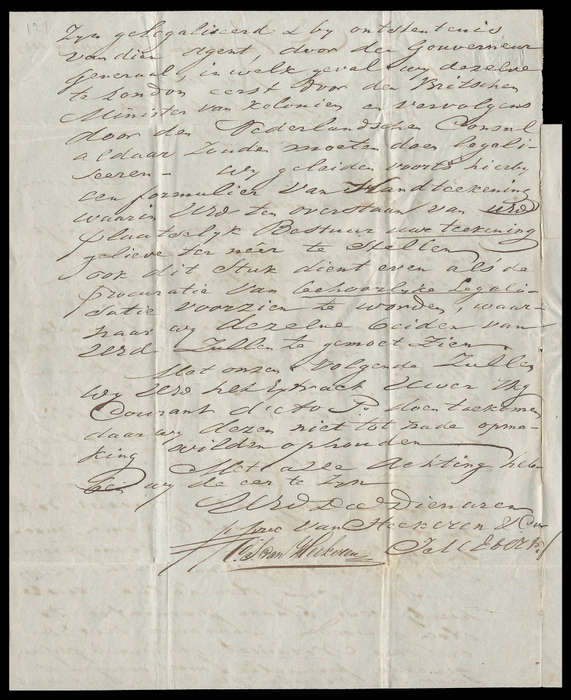 Zyn gelegaliseerd & by ontstentenis
van dien Agent, door den Gouverneur
Generaal, in welk geval wy dezelve
te London eerst door den Britschen
Minister van Kolonien en vervolgens
door den Nederlandschen Consul
aldaar zouden moeten doen legali-
seeren - Wy geleiden voorts hierby
een formulier van Handteekening
waaren UEd ten overstaan van UEd
plaatselyk Bestuur uwe teekening
gelieve ter néér te stellen
ook dit stuk dient even als de
procuratie van behoorlyke Legali-
satie voorzien te worden, waar-
naar wy dezelve beiden van
UEd zullen te gemoet zien.
Met onzen volgende zullen
wy UEd het Extract Uwer
Courant doen toekomen
daar wy dezen niet tot nade opma-
king wilden ophouden
Met alle Achting heb-
be wy de eer te zyn
UEd Dw Dienaren
van Heekeren & Co
van Heekeren